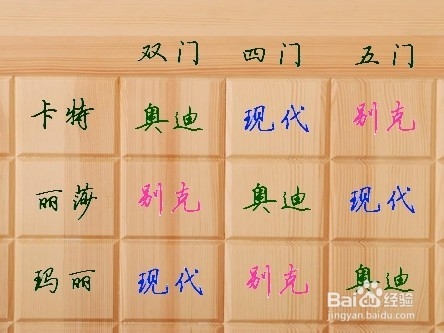 双门 四门 五门
卡特 奥迪 现代 别克
丽莎 别克 奥迪 现代
玛丽 现代 别克 奥迪
Baidu经验
jingyan.baidu.com